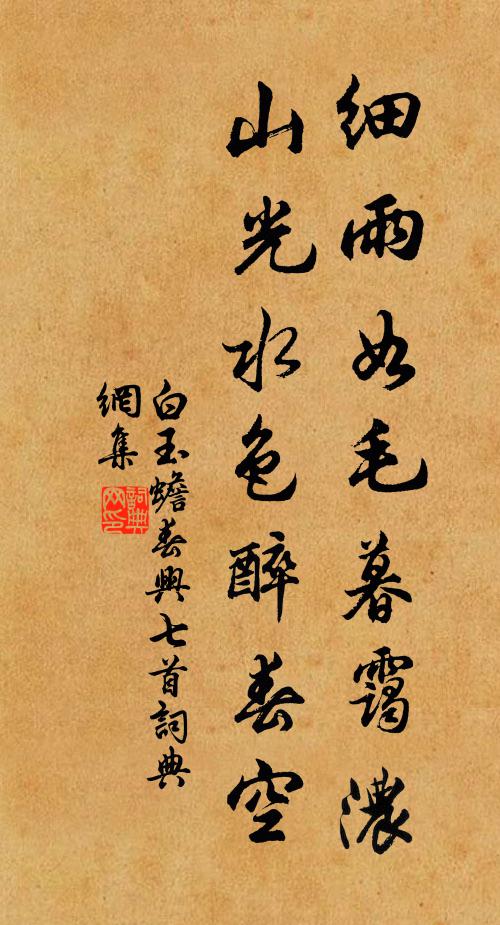 細雨如毛暮靄濃
山光水色醉春空
白玉蟾春興七首詞典
網集
詞典
网印